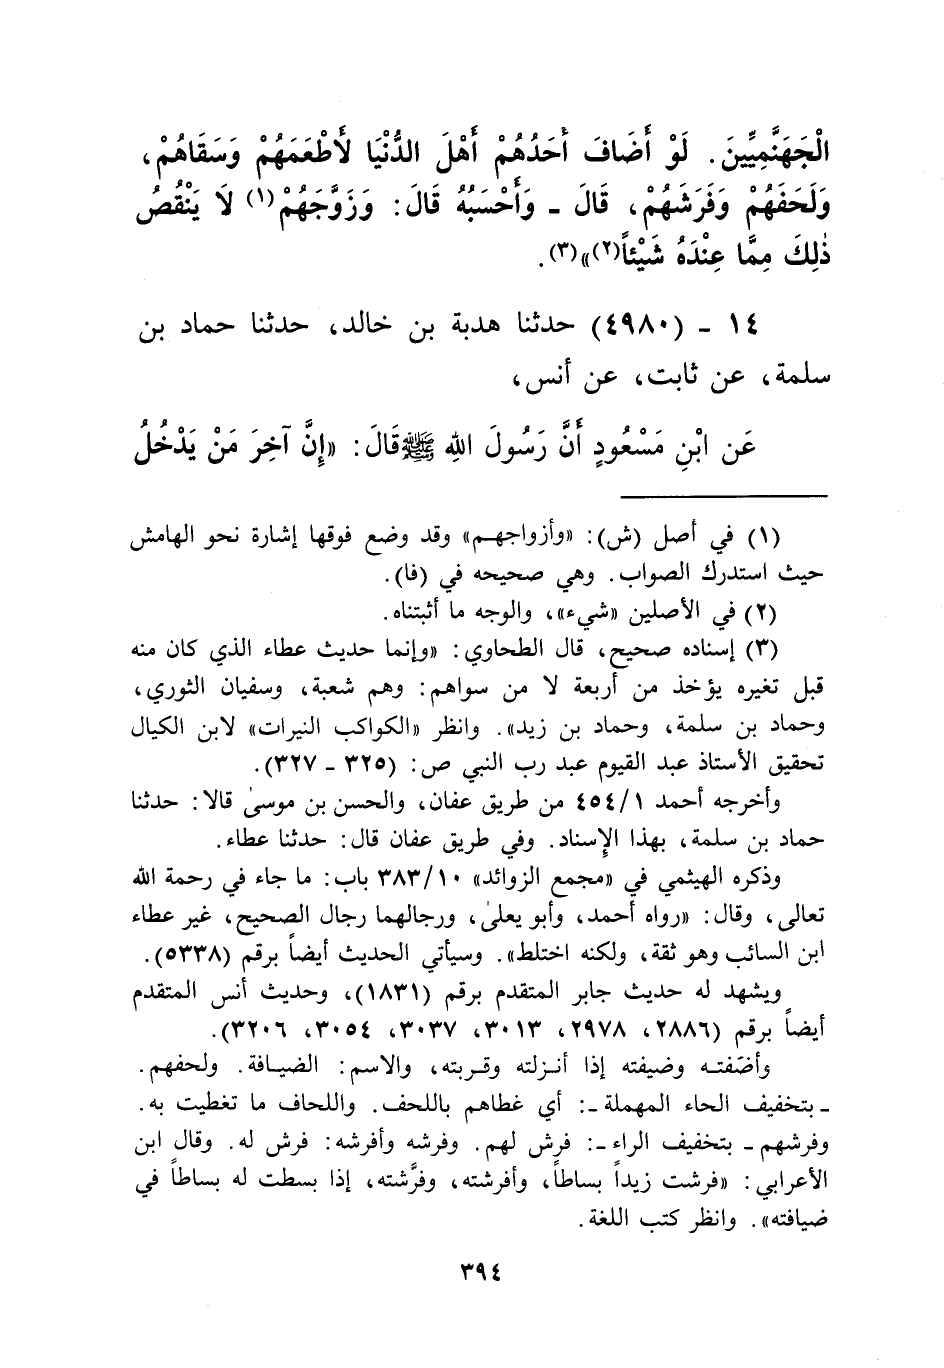 الْجَهَنَّمِيِّينَ. لَوْ أَضَافَ أَحَدُهُمْ أَهْلَ الدُّنْيَا لَأَطْعَمَهُمْ وَسَقَاهُمْ،
وَلَحَفَهُمْ وَفَرَشَهُمْ، قَالَ - وَأَحْسَبُهُ قَالَ: وَزَوَّجَهُمْ(١) لَا يَنْقُصُ
ذٰلِكَ مِمَّا عِنْدَهُ شَيْئاً(٢)»(٣).
١٤ - (٤٩٨٠) حدثنا هدبة بن خالد، حدثنا حماد بن
سلمة، عن ثابت، عن أنس،
عَن ابْنِ مَسْعُودٍ أَنَّ رَسُولَ اللهِ ﷺ قَالَ: «إِنَّ آخِرَ مَنْ يَدْخُلُ
(١) في أصل (ش): «وأزواجهم» وقد وضع فوقها إشارة نحو الهامش
حيث استدرك الصواب. وهي صحيحه في (فا).
(٢) في الأصلين «شيء»، والوجه ما أثبتناه.
(٣) إسناده صحيح، قال الطحاوي: «وإنما حديث عطاء الذي كان منه
قبل تغيره يؤخذ من أربعة لا من سواهم: وهم شعبة، وسفيان الثوري،
وحماد بن سلمة، وحماد بن زيد». وانظر «الكواكب النيرات» لابن الكيال
تحقيق الأستاذ عبد القيوم عبد رب النبي ص: (٣٢٥ - ٣٢٧).
وأخرجه أحمد ٤٥٤/١ من طريق عفان، والحسن بن موسىٰ قالا: حدثنا
حماد بن سلمة، بهذا الإسناد. وفي طريق عفان قال: حدثنا عطاء.
وذكره الهيثمي في «مجمع الزوائد» ٣٨٣/١٠ باب: ما جاء في رحمة الله
تعالى، وقال: «رواه أحمد، وأبو يعلىٰ، ورجالهما رجال الصحيح، غير عطاء
ابن السائب وهو ثقة، ولكنه اختلط». وسيأتي الحديث أيضاً برقم (٥٣٣٨).
ويشهد له حديث جابر المتقدم برقم (١٨٣١)، وحديث أنس المتقدم
أيضاً برقم (٢٨٨٦، ٢٩٧٨، ٣٠١٣، ٣٠٣٧، ٣٠٥٤، ٣٢٠٦).
وأضَفتـه وضيفته إذا أنـزلته وقـربته، والاسم: الضيـافة. ولحفهم.
- بتخفيف الحاء المهملة -: أي غطاهم باللحف. واللحاف ما تغطيت به.
وفرشهم - بتخفيف الراء -: فرش لهم. وفرشه وأفرشه: فرش له. وقال ابن
الأعرابي: «فرشت زيداً بساطاً، وأفرشته، وفرَّشته، إذا بسطت له بساطاً في
ضيافته». وانظر كتب اللغة.
٣٩٤